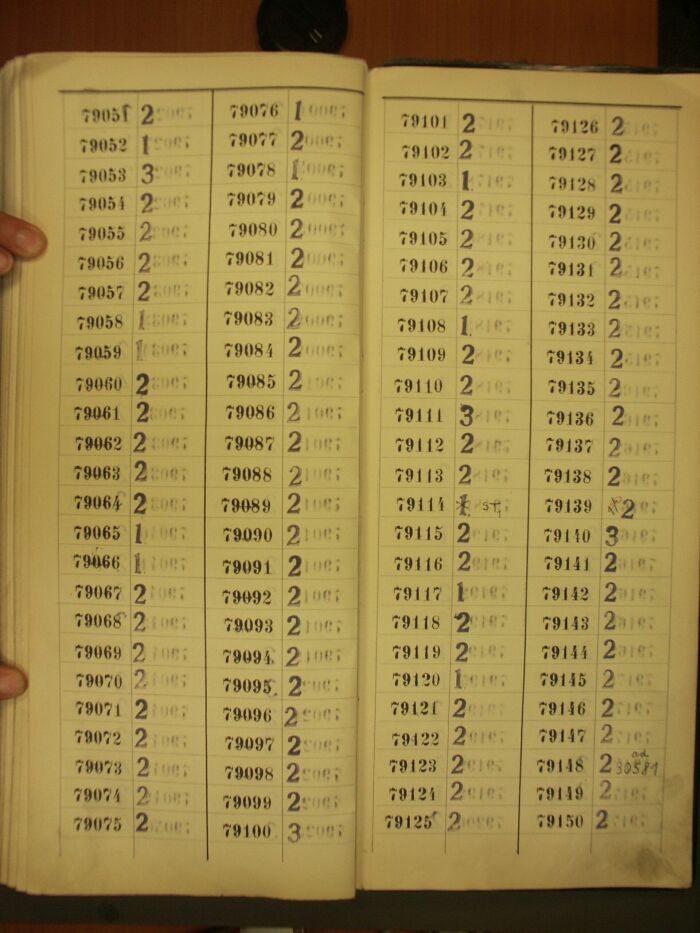 79051 2
79052 1
79053 3
79054 2
79055 2
79056 2
79057 2
79058 1
79059 1
79060 2
79061 2
79062 2
79063 2
79064 2
79065 1
79066 1
79067 2
79068 2
79069 2
79070 2
79071 2
79072 2
79073 2
79074 2
79075 2
79076 1
79077 2
79078 1
79079 2
79080 2
79081 2
79082 2
79083 2
79084 2
79085 2
79086 2
79087 2
79088 2
79089 2
79090 2
79091 2
79092 2
79093 2
79094 2
79095 2
79096 2
79097 2
79098 2
79099 2
79100 3
79101 2
79102 2
79103 1
79104 2
79105 2
79106 2
79107 2
79108 1
79109 2
79110 2
79111 3
79112 2
79113 2
79114 1
79115 2
79116 2
79117 1
79118 2
79119 2
79120 1
79121 2
79122 2
79123 2
79124 2
79125 2
79126 2
79127 2
79128 2
79129 2
79130 2
79131 2
79132 2
79133 2
79134 2
79135 2
79136 2
79137 2
79138 2
79139 2
79140 3
79141 2
79142 2
79143 2
79144 2
79145 2
79146 2
79147 2
79148 2 ad 30581
79149 2
79150 2